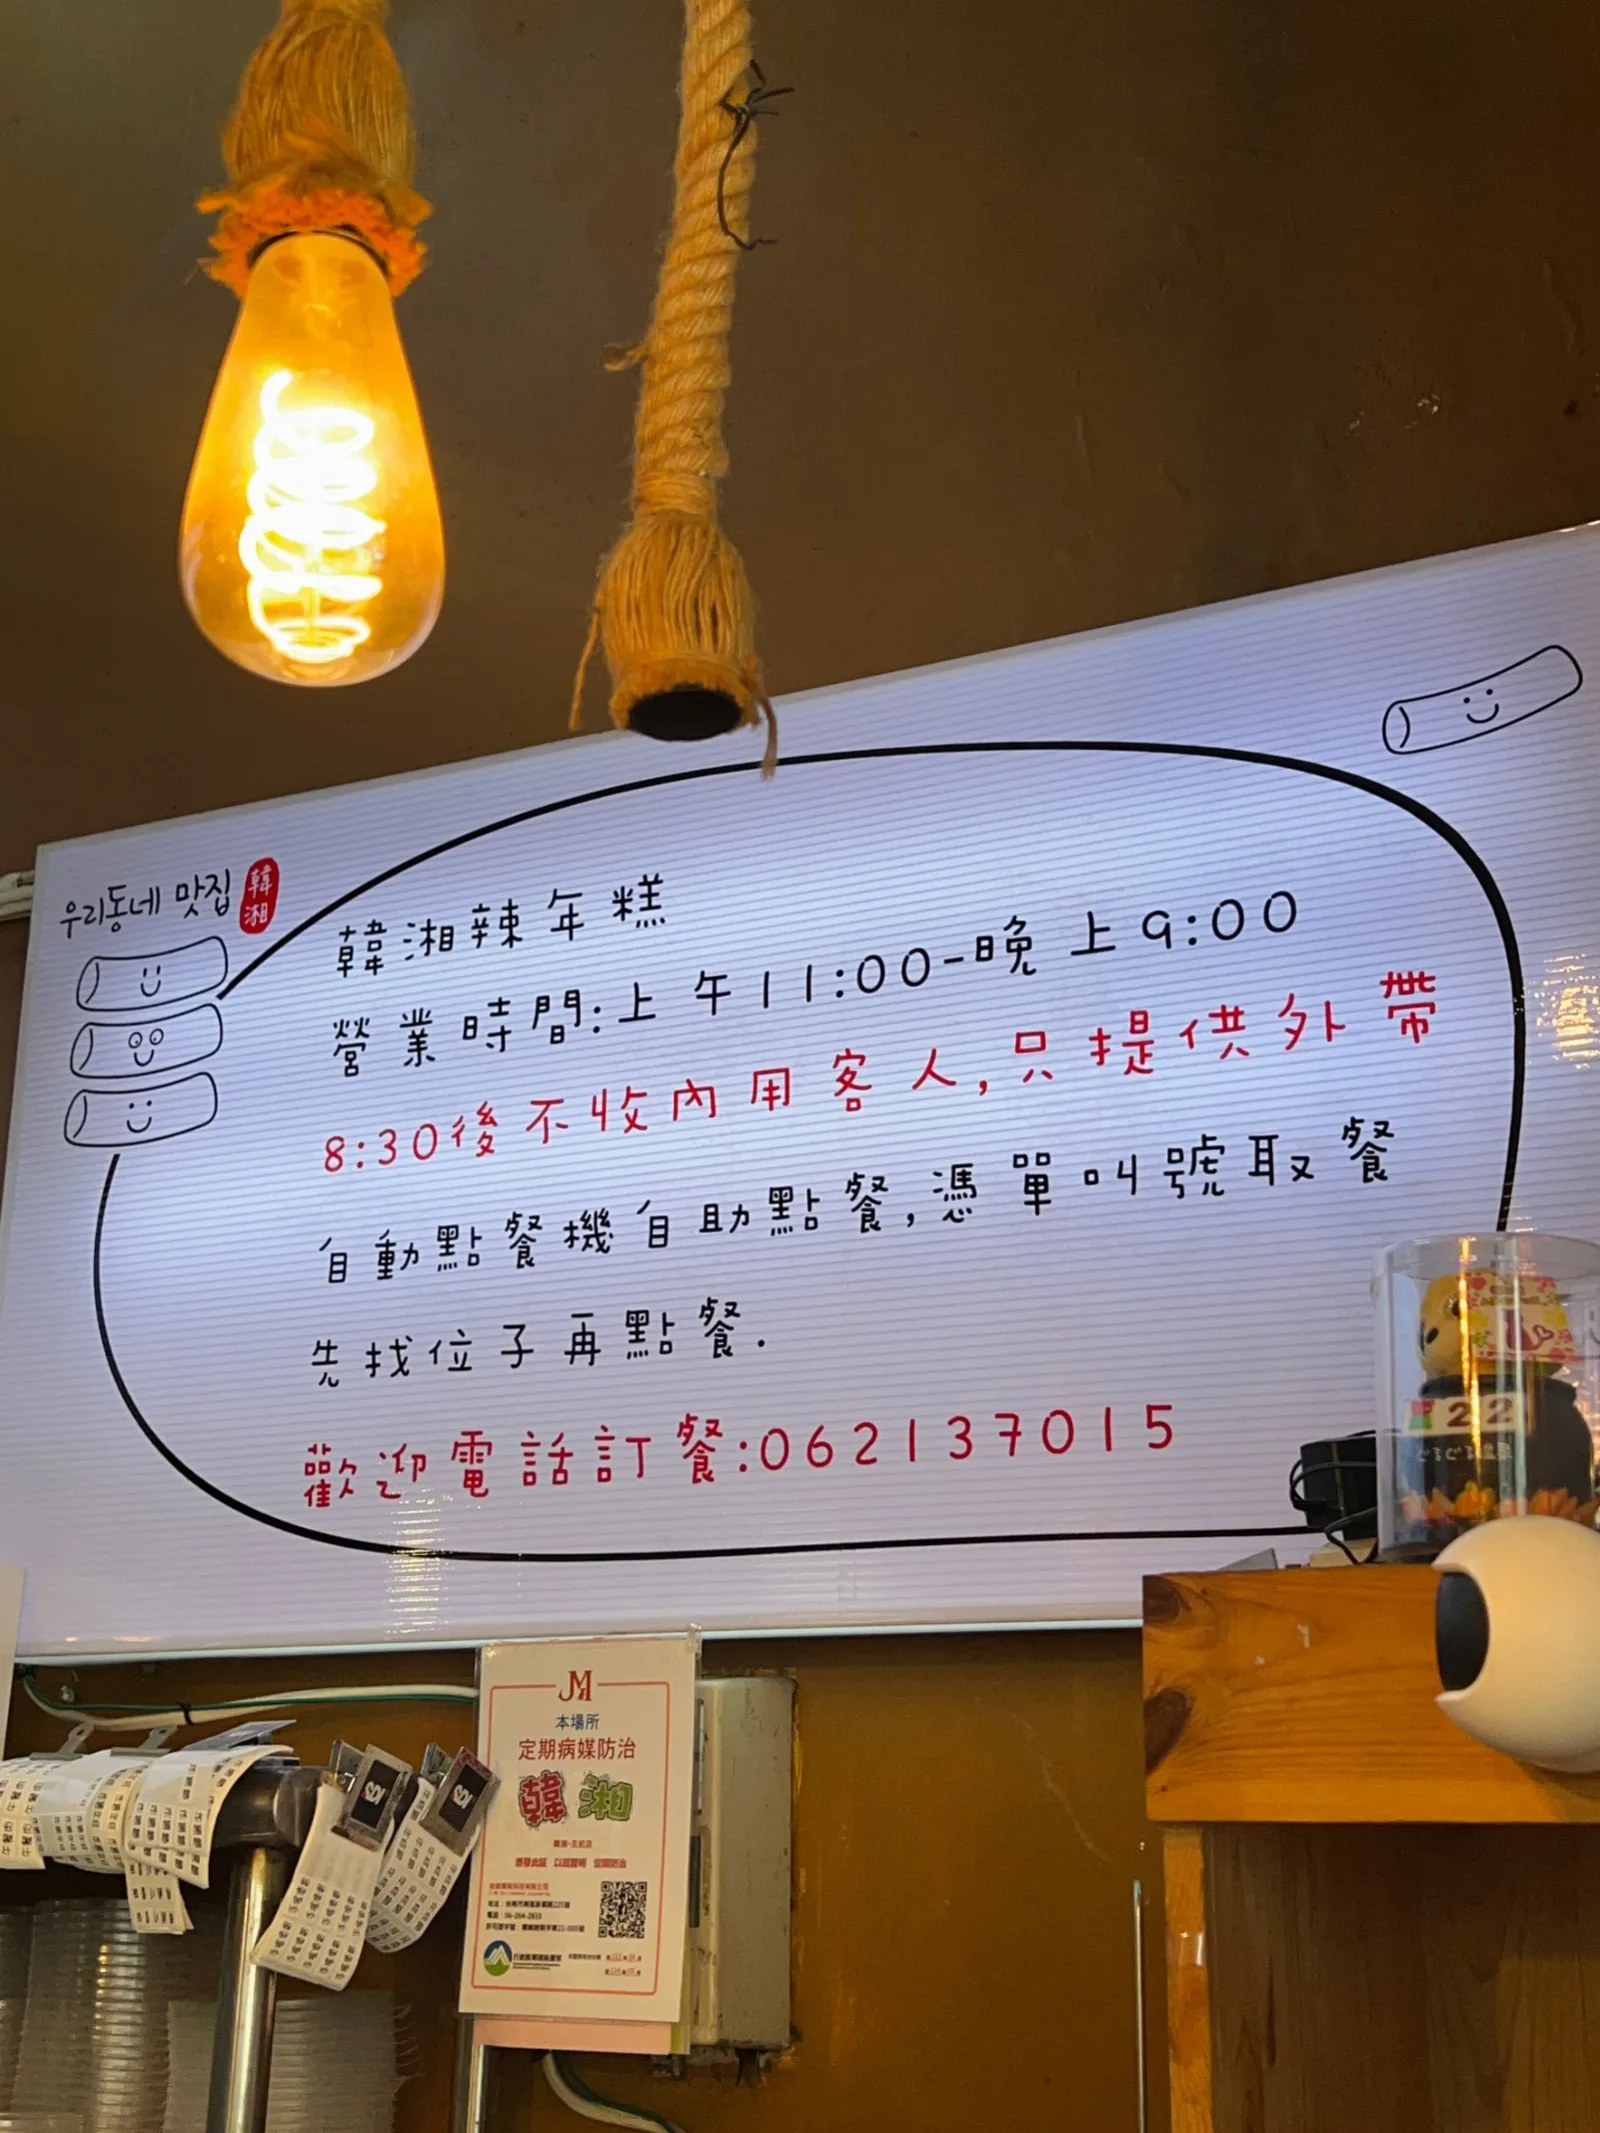 우리동네 맛집
韓湘
韓湘辣年糕
營業時間:上午11:00-晚上9:00
8:30後不收內用客人,只提供外帶
自動點餐機自助點餐,憑單叫號取餐
先找位子再點餐.
歡迎電話訂餐:062137015
22
JM
本場所
定期病媒防治
韓湘